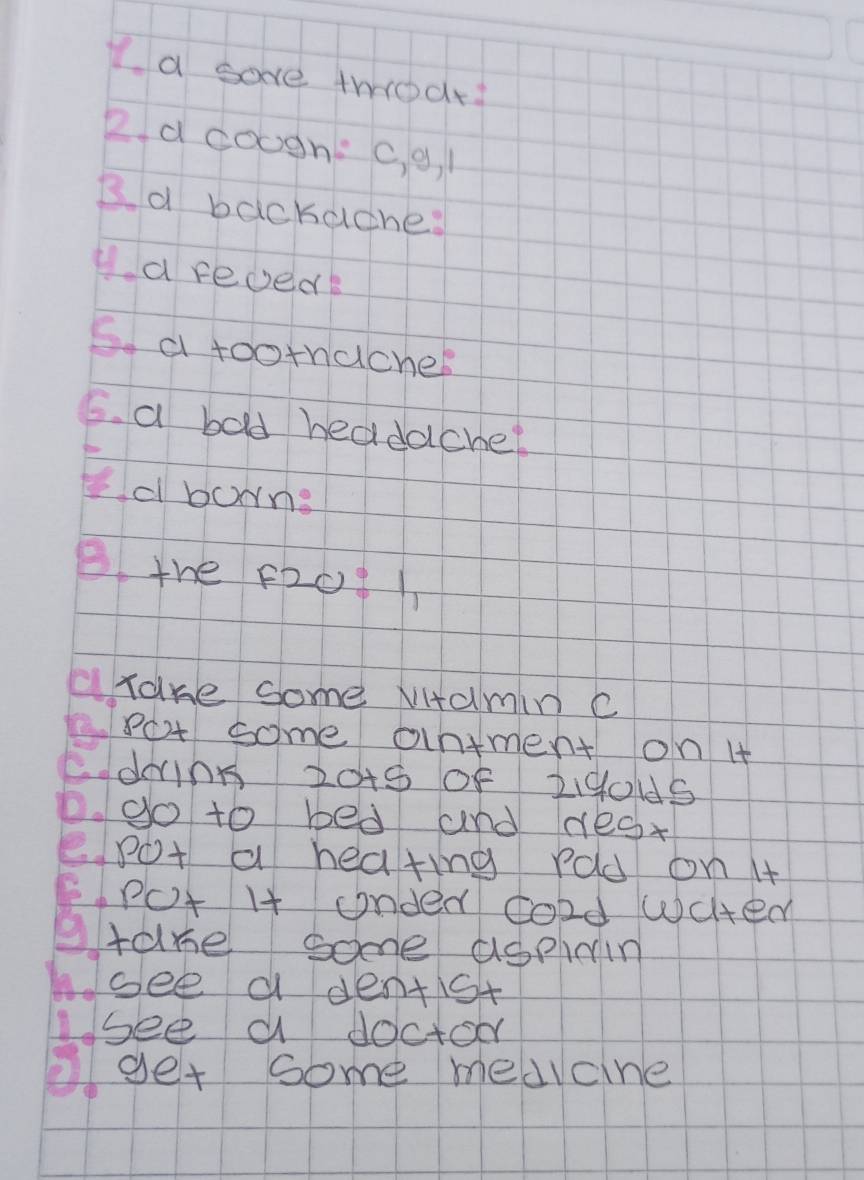 1. a sore throat:
2. a cough: c, g, i
3. a backache:
4. a fever:
5. a toothache:
6. a bad headache:
7. a burn:
8. the flu: h
a. take some vitamin c
B. Put some ointment on it
C. drink lots of liquids
D. go to bed and rest
e. Put a heating pad on it
F. Put it under cold water
g. take some aspirin
h. see a dentist
I. see a doctor
J. get some medicine